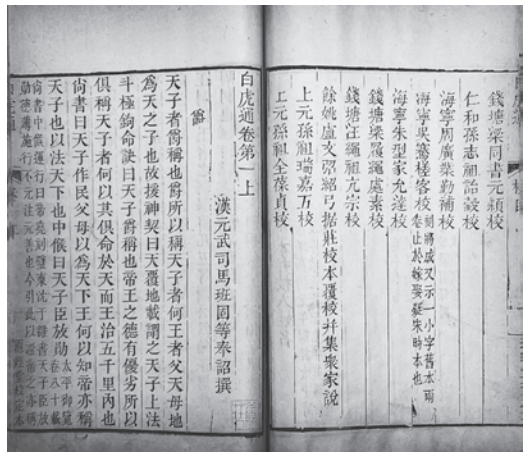 錢塘梁同書元穎校
仁和孫志祖詒穀校
海寧周廣業勤補校
海寧吳騫槎客校 刻將成又示一小字舊本兩卷止於嫁娶舉朱時本也
海寧朱型家允達校
錢塘梁履繩處素校
錢塘汪繩祖亢宗校
餘姚盧文弨紹弓據莊校本覆校并集衆家說
上元孫祖瑞嘉五校
上元孫祖全葆貞校
白虎通卷第一上
漢元武司馬班固等奉詔撰
爵
天子者爵稱也爵所以稱天子者何王者父天母地
為天之子也故援神契曰天覆地載謂之天子上法
斗極鉤命訣曰天子爵稱也帝王之德有優劣所以
俱稱天子者何以其俱命於天而王治五千里內也
尚書曰天子作民父母以為天下王何以知帝亦稱
天子也以法天下也中候曰天子臣放勛